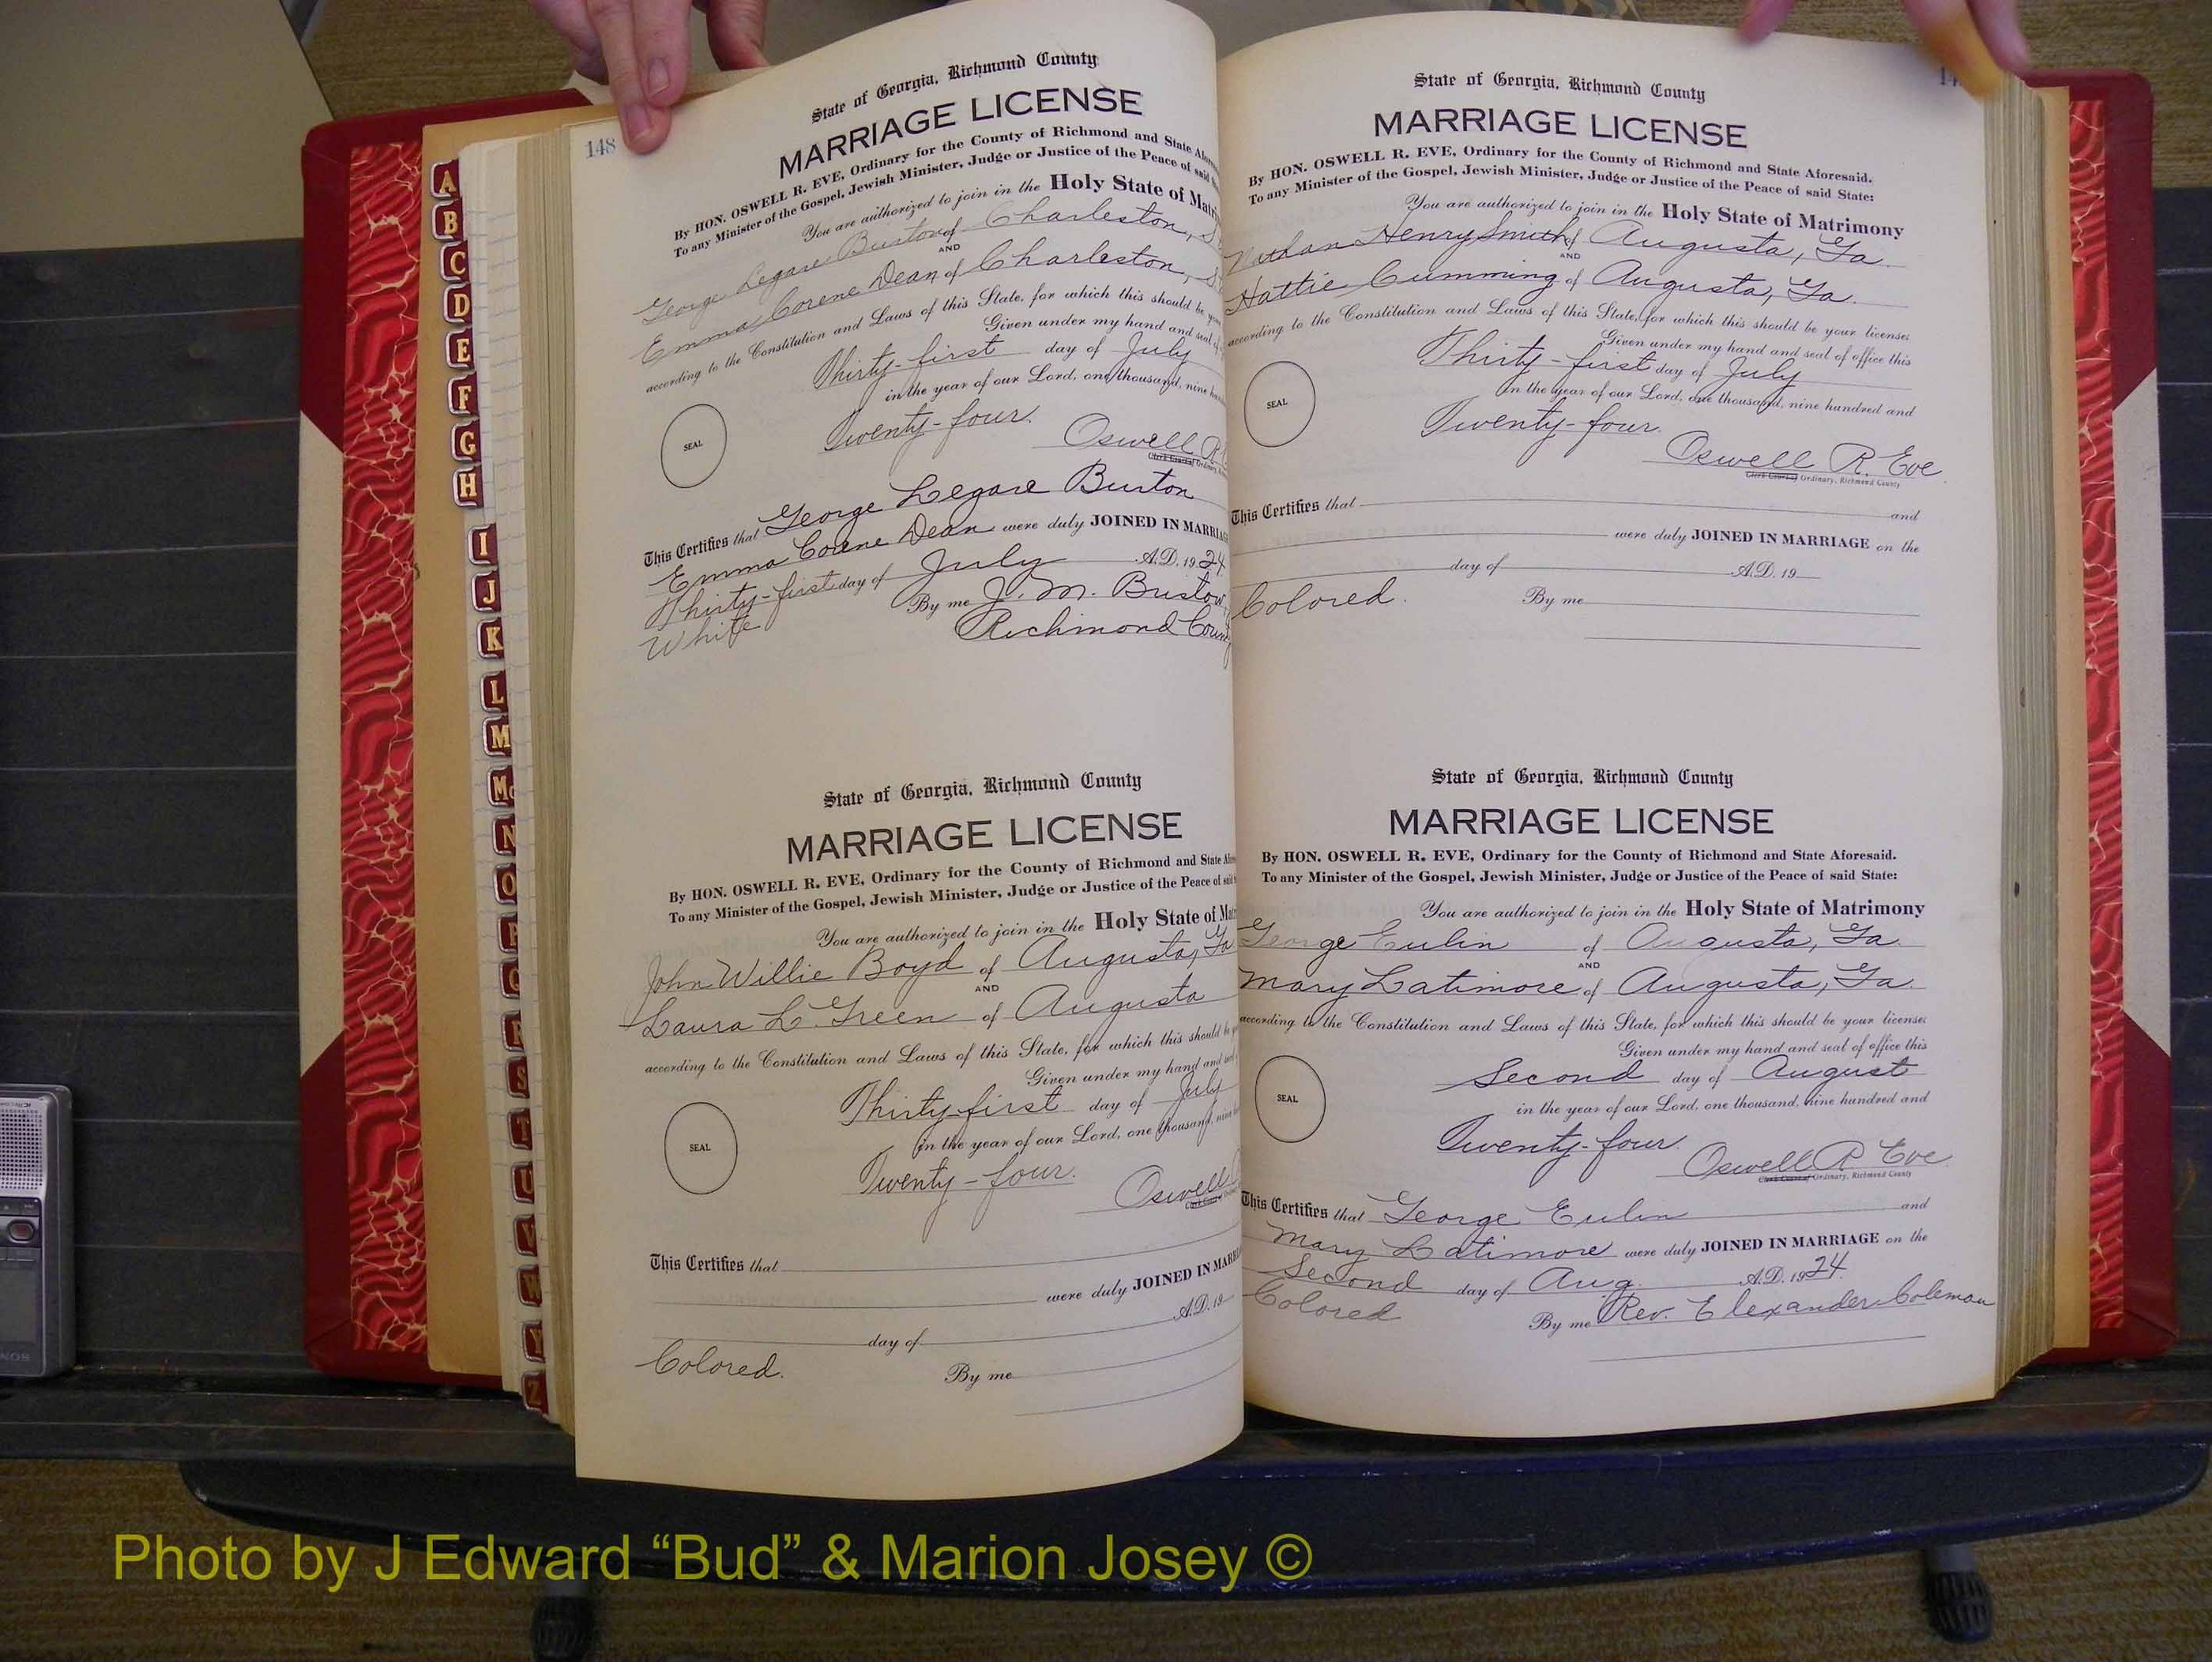 148
State of Georgia, Richmond County
MARRIAGE LICENSE
By HON. OSWELL R. EVE, Ordinary for the County of Richmond and State
To any Minister of the Gospel, Jewish Minister, Judge or Justice of the Peace of said
You are authorized to join in the Holy State of
George Legare Burton of Charleston, S
AND
Emma Corene Dean of Charleston, S
according to the Constitution and Laws of this State, for which this should be
Given under my hand and seal of
Thirty-first day of July
in the year of our Lord, one thousand, nine
Twenty-four.
SEAL
Oswell R.
This Certifies that George Legare Burton
Emma Corene Dean were duly JOINED IN
Thirty-first day of July A.D. 1924
White
By me J. M. Bristow
Richmond
State of Georgia, Richmond County
MARRIAGE LICENSE
By HON. OSWELL R. EVE, Ordinary for the County of Richmond and State
To any Minister of the Gospel, Jewish Minister, Judge or Justice of the Peace of said
You are authorized to join in the Holy State of
John Willie Boyd of Augusta, Ga
AND
Laura L. Green of Augusta
according to the Constitution and Laws of this State, for which this should be
Given under my hand and
Thirty-first day of July
in the year of our Lord, one thousand,
Twenty-four.
SEAL
Oswell
This Certifies that
were duly JOINED IN
day of A.D. 19
Colored.
By me
State of Georgia, Richmond County
MARRIAGE LICENSE
By HON. OSWELL R. EVE, Ordinary for the County of Richmond and State Aforesaid.
To any Minister of the Gospel, Jewish Minister, Judge or Justice of the Peace of said State:
You are authorized to join in the Holy State of Matrimony
Nathan Henry Smith of Augusta, Ga.
AND
Hattie Cumming of Augusta, Ga.
according to the Constitution and Laws of this State, for which this should be your license:
Given under my hand and seal of office this
Thirty-first day of July
in the year of our Lord, one thousand, nine hundred and
Twenty-four.
SEAL
Oswell R. Eve
Ordinary, Richmond County
This Certifies that and
were duly JOINED IN MARRIAGE on the
day of A.D. 19
Colored.
By me
State of Georgia, Richmond County
MARRIAGE LICENSE
By HON. OSWELL R. EVE, Ordinary for the County of Richmond and State Aforesaid.
To any Minister of the Gospel, Jewish Minister, Judge or Justice of the Peace of said State:
You are authorized to join in the Holy State of Matrimony
George Eulin of Augusta, Ga.
AND
Mary Latimore of Augusta, Ga.
according to the Constitution and Laws of this State, for which this should be your license:
Given under my hand and seal of office this
Second day of August
in the year of our Lord, one thousand, nine hundred and
Twenty-four.
SEAL
Oswell R Eve
Ordinary, Richmond County
This Certifies that George Eulin and
Mary Latimore were duly JOINED IN MARRIAGE on the
Second day of Aug. A.D. 1924.
Colored
By me Rev. Elexander Coleman
A
B
C
D
E
F
G
H
I
J
K
L
M
Mc
N
O
P
Q
R
S
T
U
V
W
Y
Z
SONY
Photo by J Edward “Bud” & Marion Josey ©